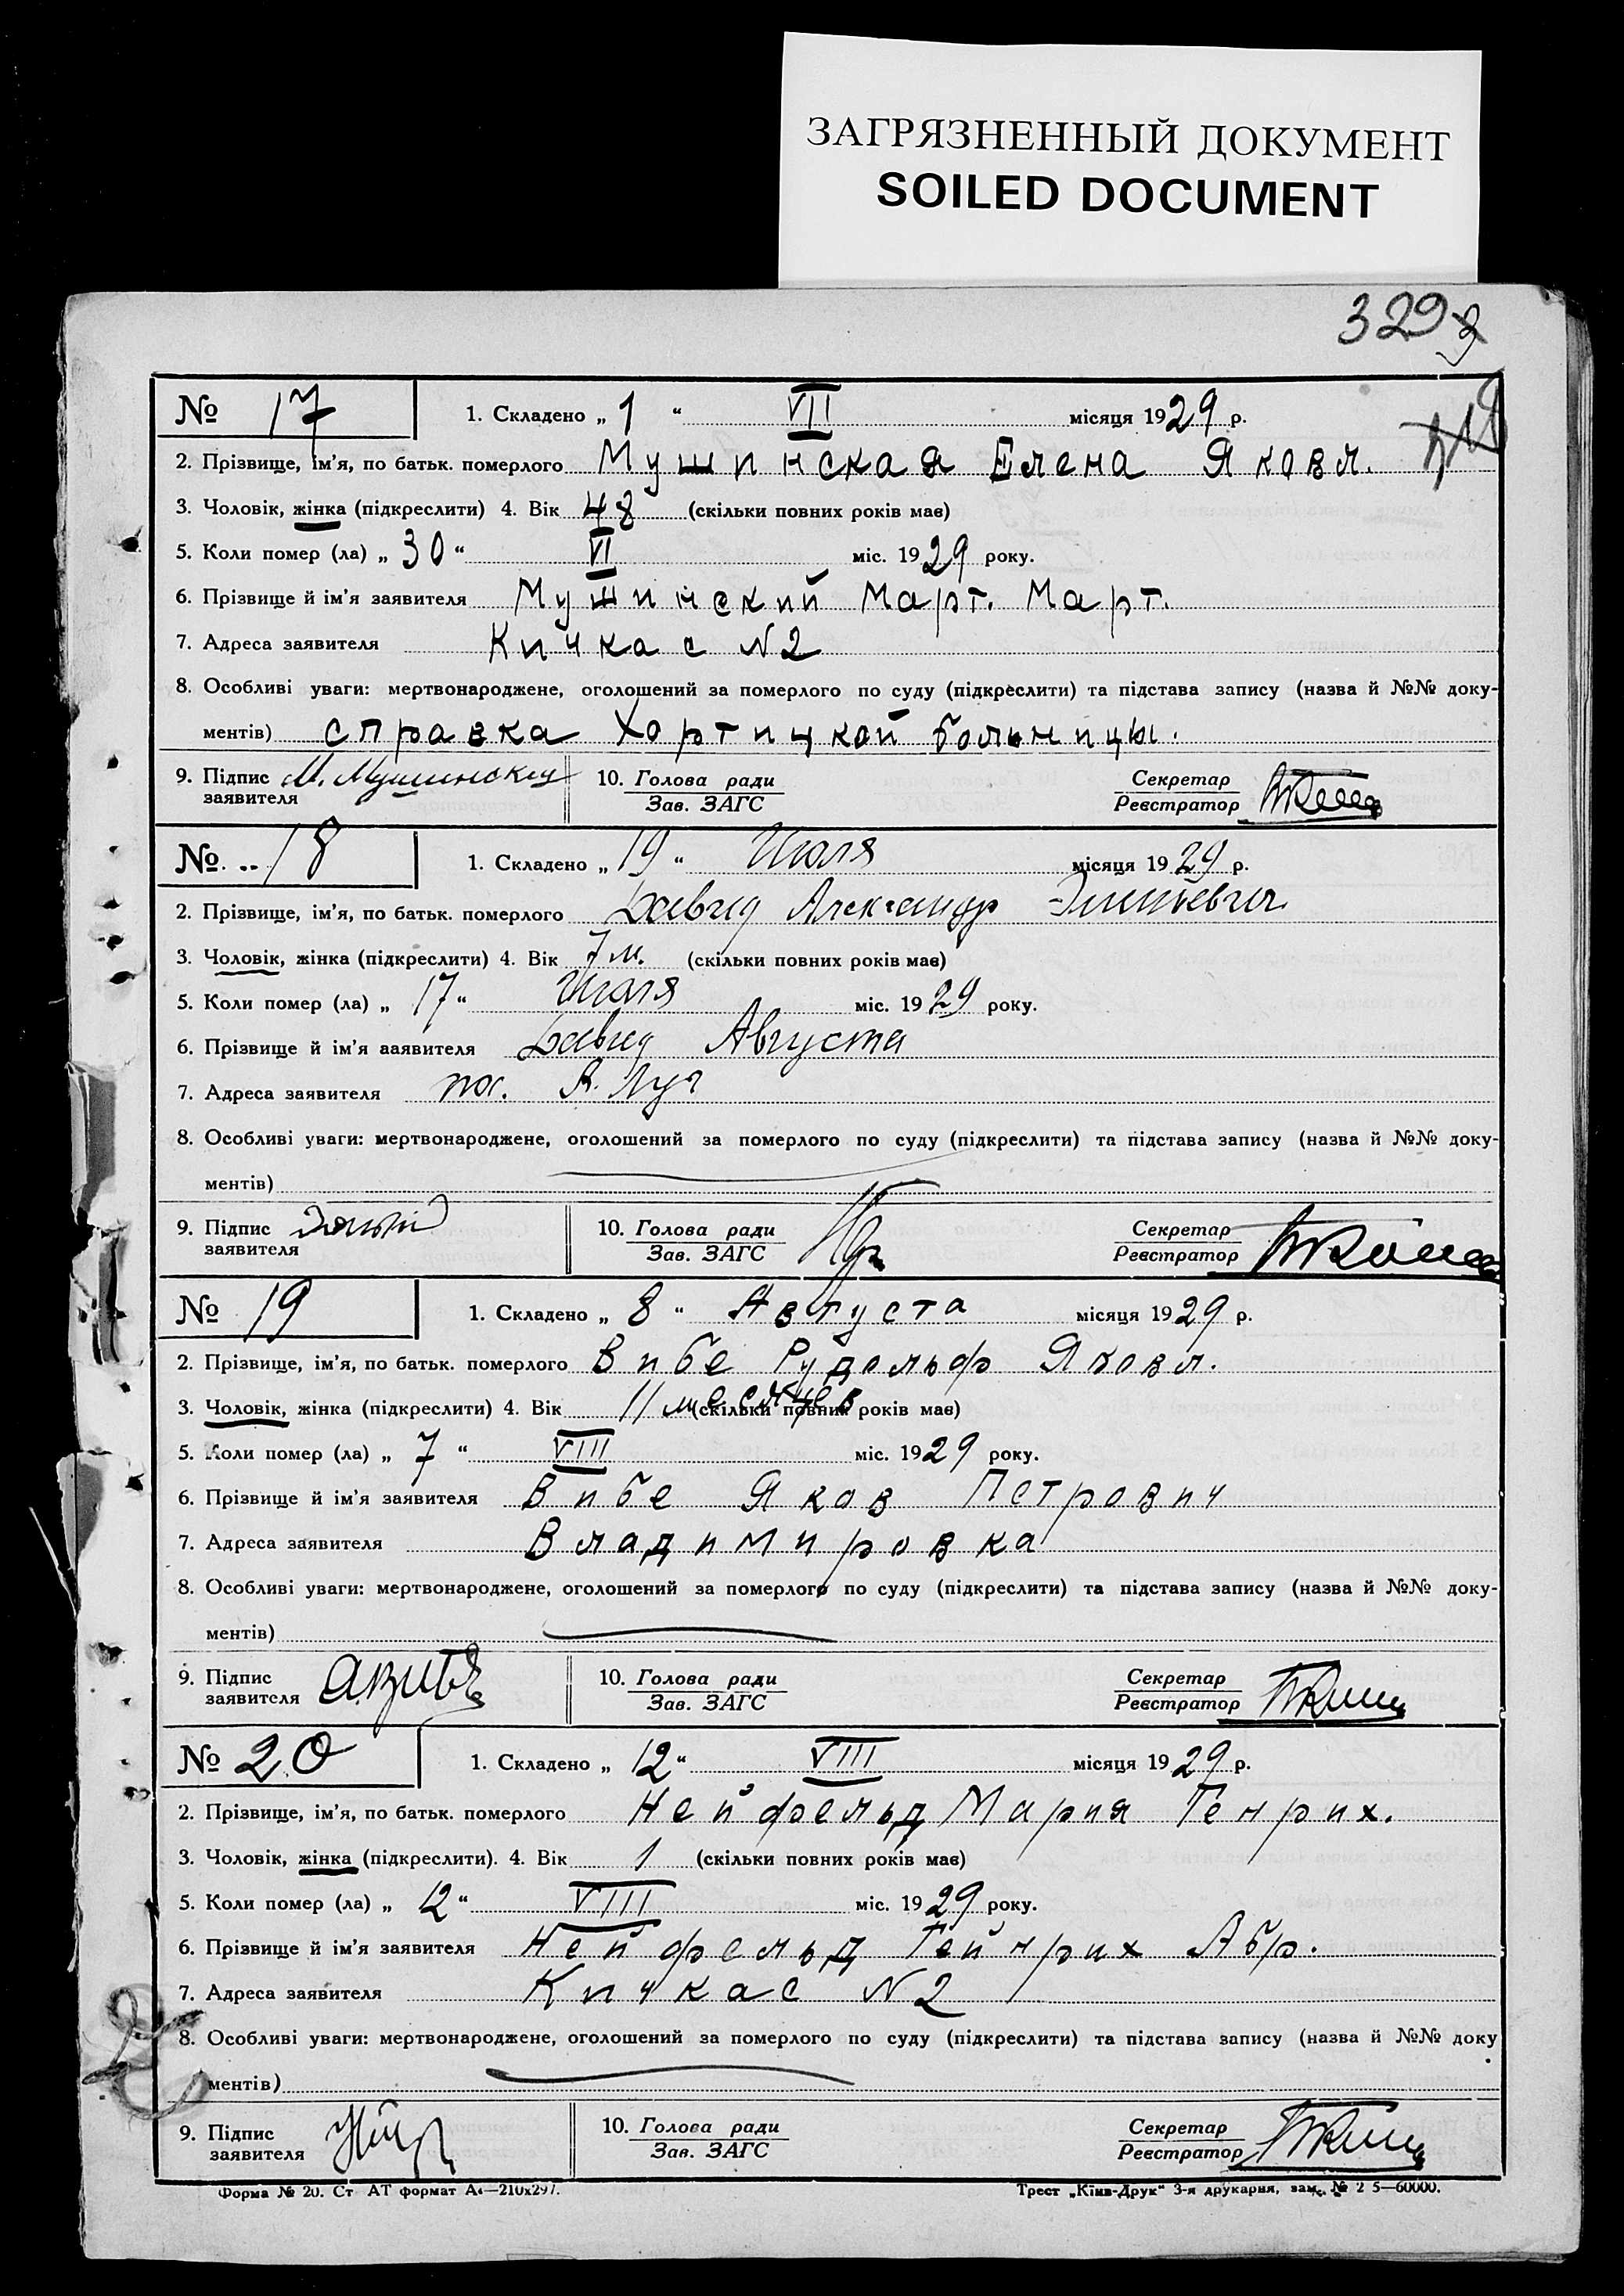 ЗАГРЯЗНЕННЫЙ ДОКУМЕНТ
SOILED DOCUMENT
329
№ 17 1. Складено „ 1 “ VII місяця 1929 р.
2. Прізвище, ім'я, по батьк. померлого Мушинская Елена Яковл.
3. Чоловік, жінка (підкреслити) 4. Вік 48 (скільки повних років має)
5. Коли помер (ла) „ 30 “ VI міс. 1929 року.
6. Прізвище й ім'я заявителя Мушинский Март. Март.
7. Адреса заявителя Кичкас N2
8. Особливі уваги: мертвонароджене, оголошений за померлого по суду (підкреслити) та підстава запису (назва й №№ доку-
ментів) справка Хортицкой больницы.
9. Підпис заявителя М. Мушинский 10. Голова ради Зав. ЗАГС Секретар Реєстратор
№ 18 1. Складено „ 19 “ Июля місяця 1929 р.
2. Прізвище, ім'я, по батьк. померлого Давид Александр
3. Чоловік, жінка (підкреслити) 4. Вік 7 м. (скільки повних років має)
5. Коли помер (ла) „ 17 “ Июля міс. 1929 року.
6. Прізвище й ім'я заявителя Давид Августа
7. Адреса заявителя Луг
8. Особливі уваги: мертвонароджене, оголошений за померлого по суду (підкреслити) та підстава запису (назва й №№ доку-
ментів)
9. Підпис заявителя 10. Голова ради Зав. ЗАГС Секретар Реєстратор
№ 19 1. Складено „ 8 “ Августа місяця 1929 р.
2. Прізвище, ім'я, по батьк. померлого Вибе Рудольф Яковл.
3. Чоловік, жінка (підкреслити) 4. Вік 11 месяцев (скільки повних років має)
5. Коли помер (ла) „ 7 “ VIII міс. 1929 року.
6. Прізвище й ім'я заявителя Вибе Яков Петрович
7. Адреса заявителя Владимировка
8. Особливі уваги: мертвонароджене, оголошений за померлого по суду (підкреслити) та підстава запису (назва й №№ доку-
ментів)
9. Підпис заявителя 10. Голова ради Зав. ЗАГС Секретар Реєстратор
№ 20 1. Складено „ 12 “ VIII місяця 1929 р.
2. Прізвище, ім'я, по батьк. померлого Нейфельд Мария Генрих.
3. Чоловік, жінка (підкреслити). 4. Вік 1 (скільки повних років має)
5. Коли помер (ла) „ 12 “ VIII міс. 1929 року.
6. Прізвище й ім'я заявителя Нейфельд Гейнрих Абр.
7. Адреса заявителя Кичкас N2
8. Особливі уваги: мертвонароджене, оголошений за померлого по суду (підкреслити) та підстава запису (назва й №№ доку
ментів)
9. Підпис заявителя 10. Голова ради Зав. ЗАГС Секретар Реєстратор
Форма № 20. Ст АТ формат А4—210х297. Трест „Київ-Друк“ 3-я друкарня, зам. № 2 5—60000.